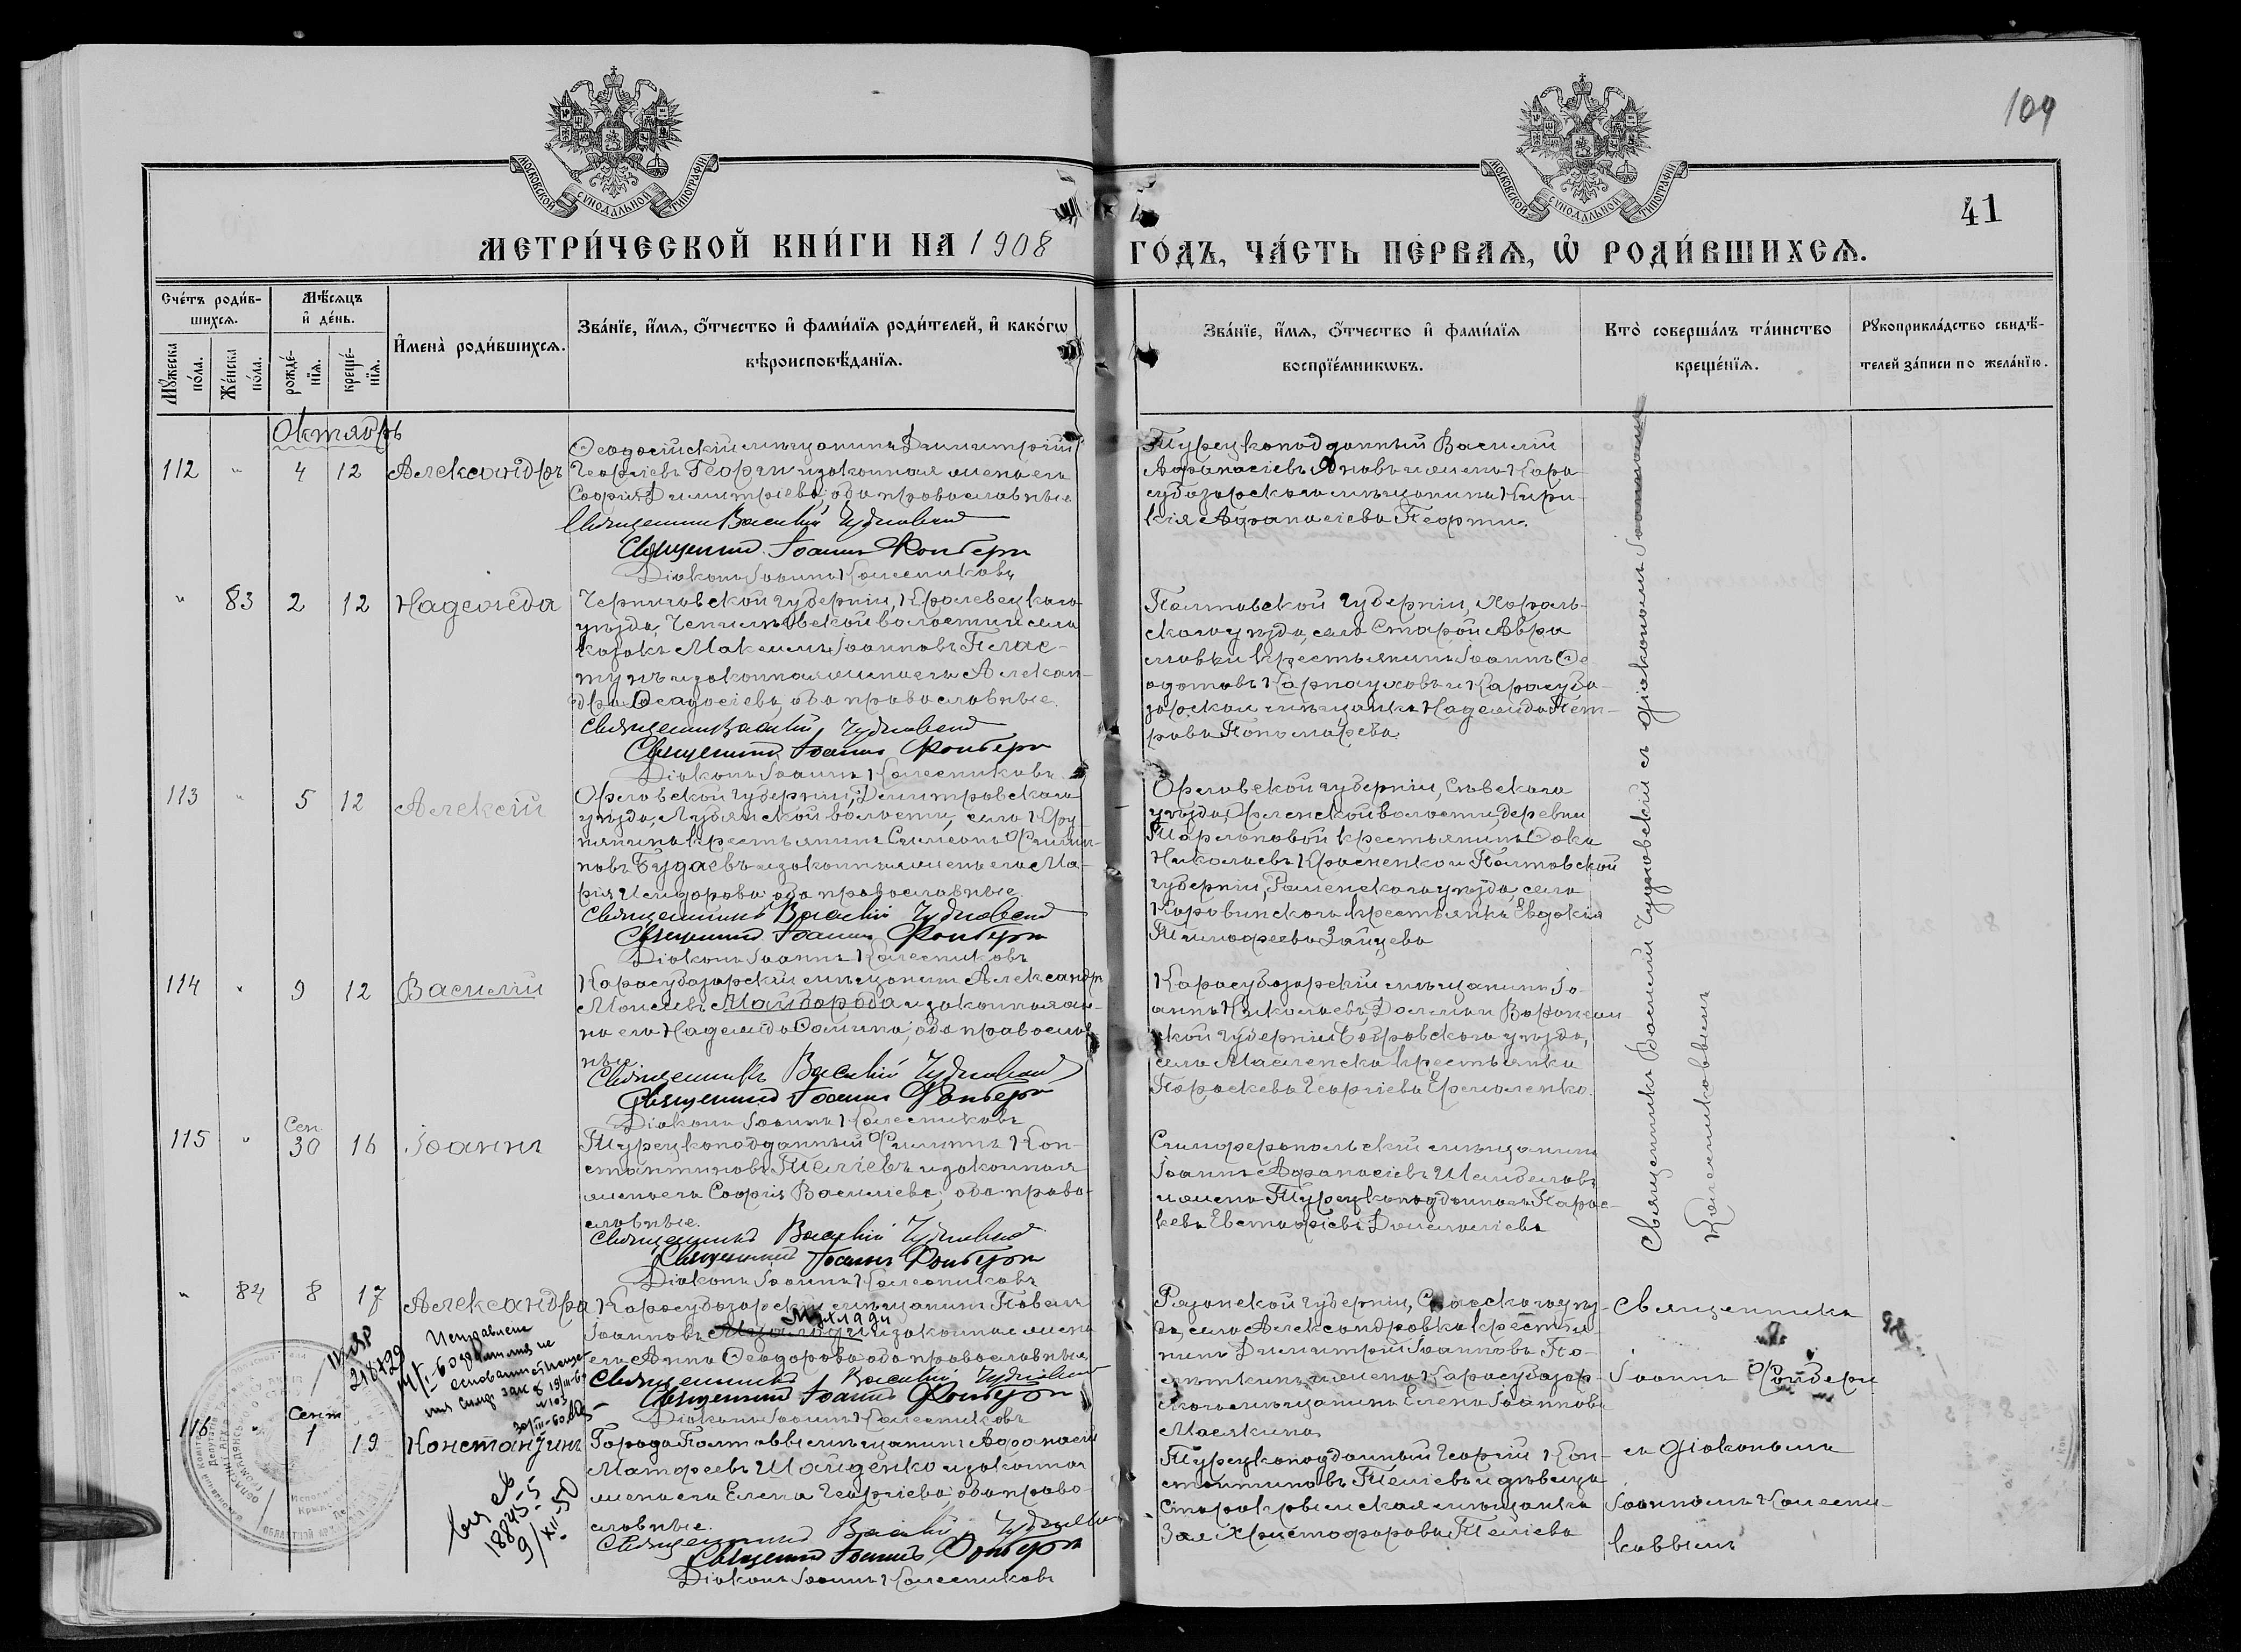 109
МОСКОВСКОЙ СУНОДАЛЬНОЙ ТИПОГРАФИИ
МОСКОВСКОЙ СУНОДАЛЬНОЙ ТИПОГРАФИИ
41
МЕТРИ́ЧЕСКОЙ КНИ́ГИ НА 1908 ГО́ДЪ, ЧА́СТЬ ПЕ́РВАѦ, Ѡ҆ РОДИ́ВШИХСѦ.
Сче́тъ роди́в-
шихсѧ.
Мѣ́сяцъ
и҆ де́нь.
Мꙋ́жеска по́ла.
Же́нска по́ла.
рожде́-
нїѧ.
креще́-
нїѧ.
И҆мена̀ роди́вшихсѧ.
Зва́нїе, и҆́мѧ, ѻ҆́тчество и҆ фами́лїѧ роди́телей, и҆ како́гѡ
вѣроисповѣ́данїѧ.
Зва́нїе, и҆́мѧ, ѻ҆́тчество и҆ фами́лїѧ
воспрїе́мникѡвъ.
Кто̀ соверша́лъ та́инство
креще́нїѧ.
Рꙋкоприкла́дство свидѣ́-
телей за́писи по жела́нїю.
Октябрь
112 " 4 12 Александръ
Ѳеодосійскій мѣщанинъ Димитрій
Георгіевъ Георги и законная жена его
Софія Димитріева, оба православные
Священникъ Василій Чудновскій
Священникъ Іоаннъ Фонбери
Діаконъ Іоаннъ Колесниковъ
Турецкоподданный Василій
Аѳанасіевъ и жена Кара-
субазарскаго мѣщанина Кири-
кія Аѳанасіева Георги.
" 83 2 12 Надежда
Черниговской губерніи, Кролевецкаго
уѣзда, волости и села
козакъ Максимъ Іоанновъ Плас-
тунъ и законная жена его Алексан-
дра Ѳеодосіева, оба православные.
Священникъ Василій Чудновскій
Священникъ Іоаннъ Фонбери
Діаконъ Іоаннъ Колесниковъ
Полтавской губерніи, Хороль-
скаго уѣзда, села Старой Авра
мовки крестьянинъ Іоаннъ Ѳе-
одотовъ Карнауховъ и Карасуба-
зарская мѣщанка Надежда Пет-
рова Пономарева.
113 " 5 12 Алексій
Орловской губерніи, Димитровскаго
уѣзда, волости, села
крестьянинъ Симеонъ Филип-
повъ Будаевъ и законная жена его Ма-
рія Исидорова, оба православные
Священникъ Василій Чудновскій
Священникъ Іоаннъ Фонбери
Діаконъ Іоаннъ Колесниковъ
Орловской губерніи, Сѣвскаго
уѣзда, волости, деревни
крестьянинъ Ѳока
Николаевъ и Полтавской
губерніи, Роменскаго уѣзда, села
Коровинскаго крестьянка Евдокія
Тимоѳеева Зайцева
114 " 9 12 Василій
Карасубазарскій мѣщанинъ Александръ
Моисеевъ Майборода и законная же-
на его Надежда, оба православ
ные
Священникъ Василій Чудновскій
Священникъ Іоаннъ Фонбери
Діаконъ Іоаннъ Колесниковъ
Карасубазарскій мѣщанинъ Іо-
аннъ Николаевъ и Воронеж
ской губерніи Бобровскаго уѣзда,
села крестьянка
Параскева Георгіева Ермоленко.
115 " Сен 30 16 Іоаннъ
Турецкоподданный Филиппъ Кон-
стантиновъ Теліевъ и законная
жена его Софія Василіева, оба право-
славные.
Священникъ Василій Чудновскій
Священникъ Іоаннъ Фонбери
Діаконъ Іоаннъ Колесниковъ
Симферопольскій мѣщанинъ
Іоаннъ Аѳанасіевъ
и жена Турецкоподданнаго Парас-
кева Евстафіева
" 84 8 17 Александра
Карасубазарскій мѣщанинъ Павелъ
Іоанновъ и законная жена
его Анна Ѳеодорова, оба православные
Священникъ Василій Чудновскій
Священникъ Іоаннъ Фонбери
Діаконъ Іоаннъ Колесниковъ
Рязанской губерніи, Спасскаго уѣз-
да, села Александровка крестья-
нинъ Димитрій Іоанновъ По-
и жена Карасубазар-
скаго мѣщанина Елена Іоаннова
Маскина
116 " Сент 1 19 Константинъ
Города Полтавы мѣщанинъ Аѳанасій
Матѳеевъ Шайденко и законная
жена его Елена Георгіева, оба право-
славные.
Священникъ Василій Чудновскій
Священникъ Іоаннъ Фонбери
Діаконъ Іоаннъ Колесниковъ
Турецкоподданный Георгій Кон-
стантиновъ Теліевъ и дѣвица
Старокрымская мѣщанка
Зоя Христофорова Теліева
Священникъ Василій Чудновскій съ діакономъ Іоанномъ
Колесниковымъ
Священникъ
Іоаннъ Фонбери
съ діакономъ
Іоанномъ Колесни-
ковымъ
Исправлена
фамилия на
основании
18845-5
9/XII-50